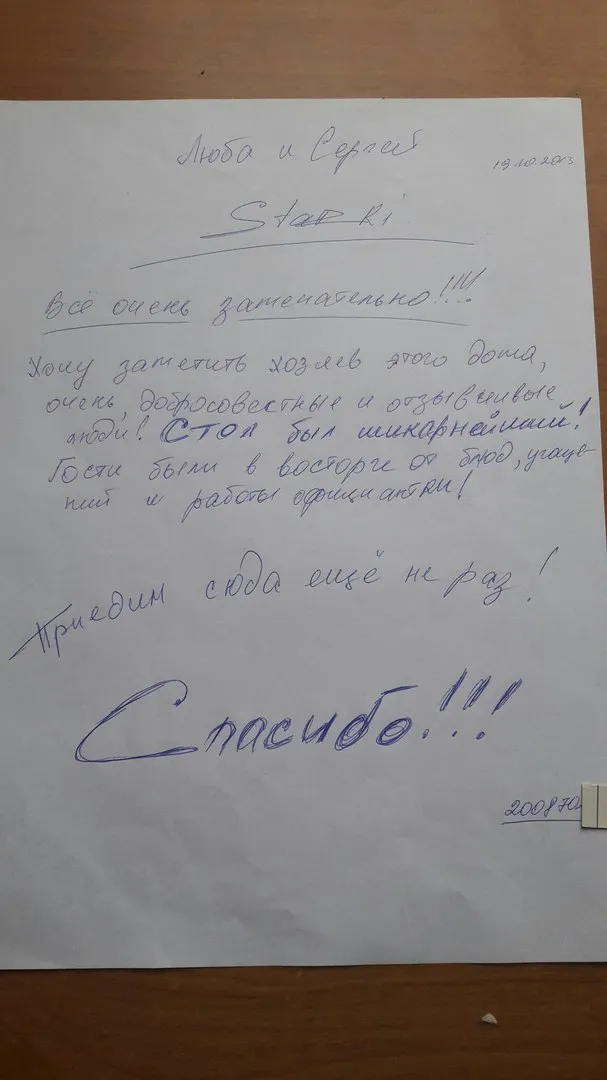 Люба и Сергей
19.10.2013
Starki
Всё очень замечательно!!!!
Хочу заметить хозяев этого дома,
очень добросовестные и отзывчивые
люди! Стол был шикарнейший!
Гости были в восторге от блюд, угаще-
ний и работы официантки!
Приедим сюда ещё не раз!
Спасибо!!!
200870